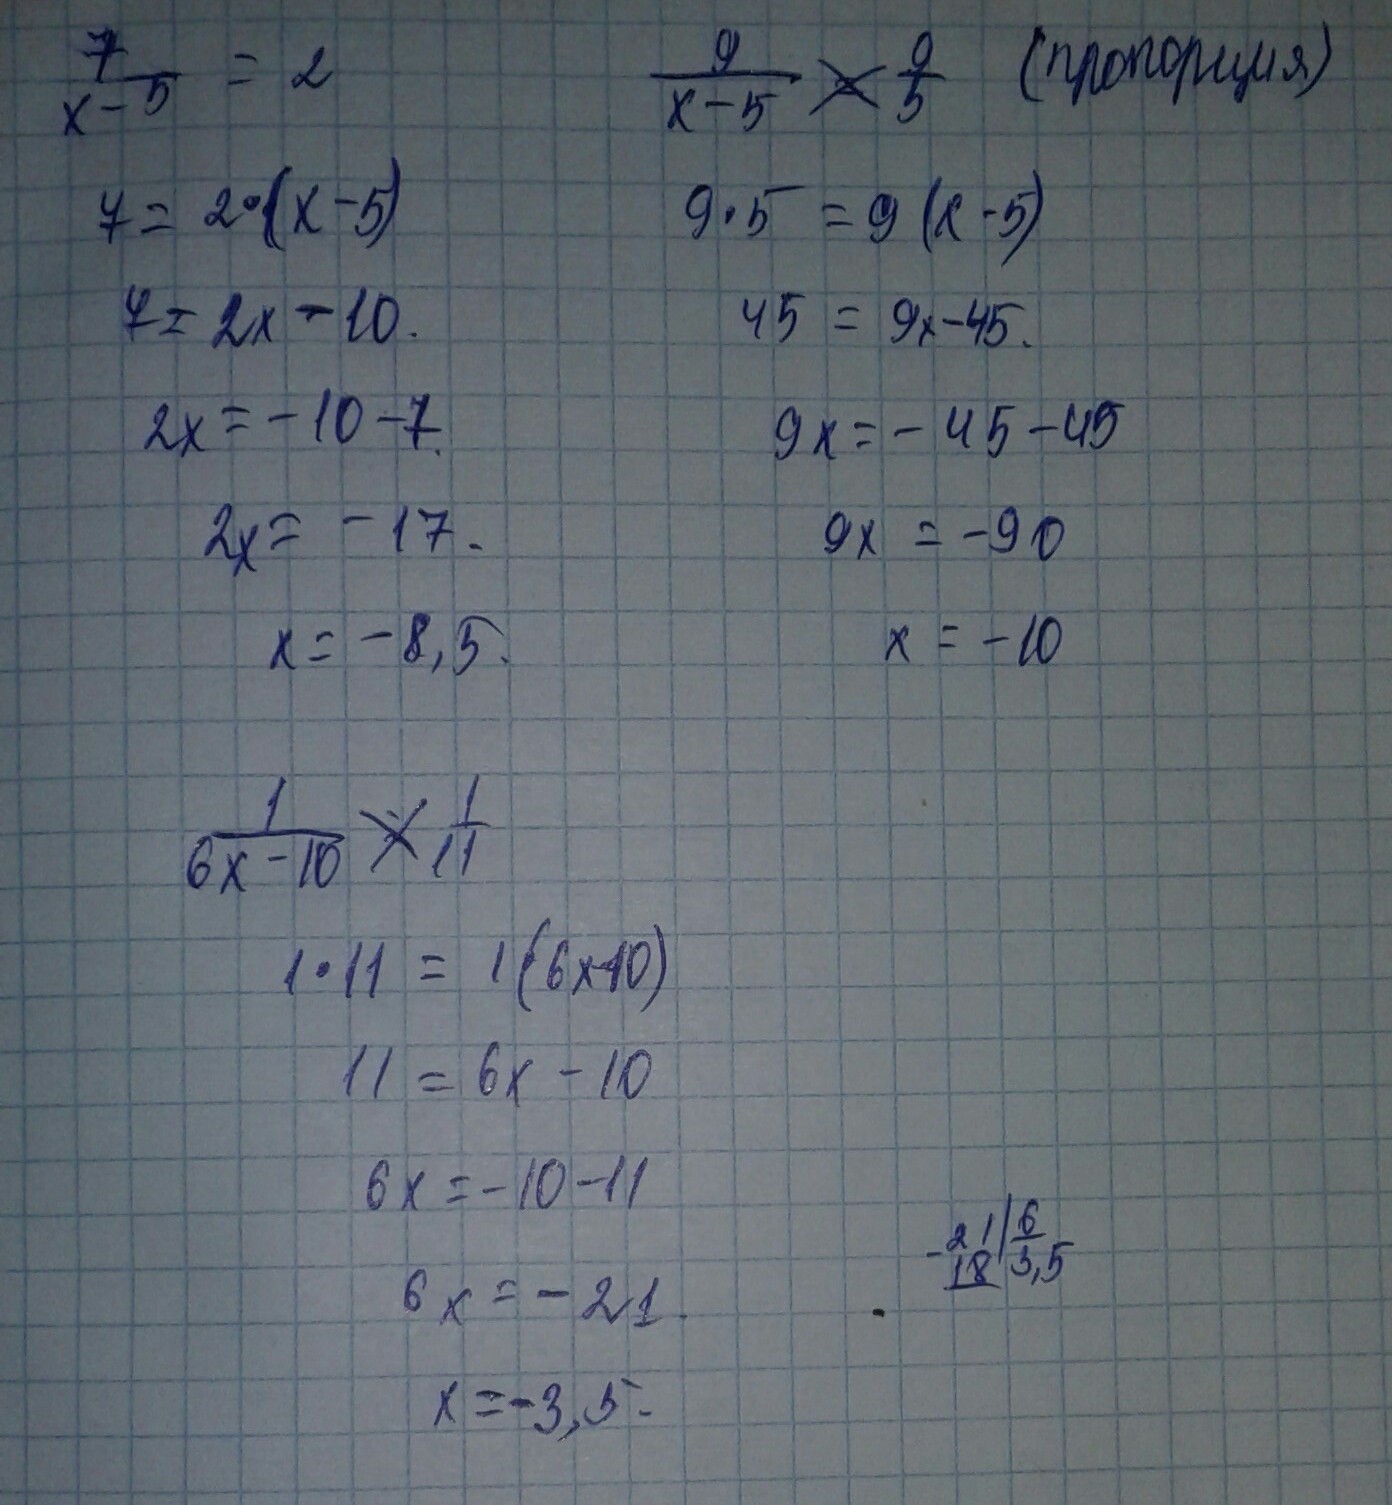 7/(x-5) = 2
7 = 2·(x-5)
7 = 2x-10.
2x = -10-7.
2x = -17.
x = -8,5.
9/(x-5) = 9/5 (пропорция)
9·5 = 9(x-5)
45 = 9x-45.
9x = -45-45
9x = -90
x = -10
1/(6x-10) = 1/11
1·11 = 1(6x-10)
11 = 6x-10
6x = -10-11
6x = -21.
x = -3,5.
-21|6
18 3,5